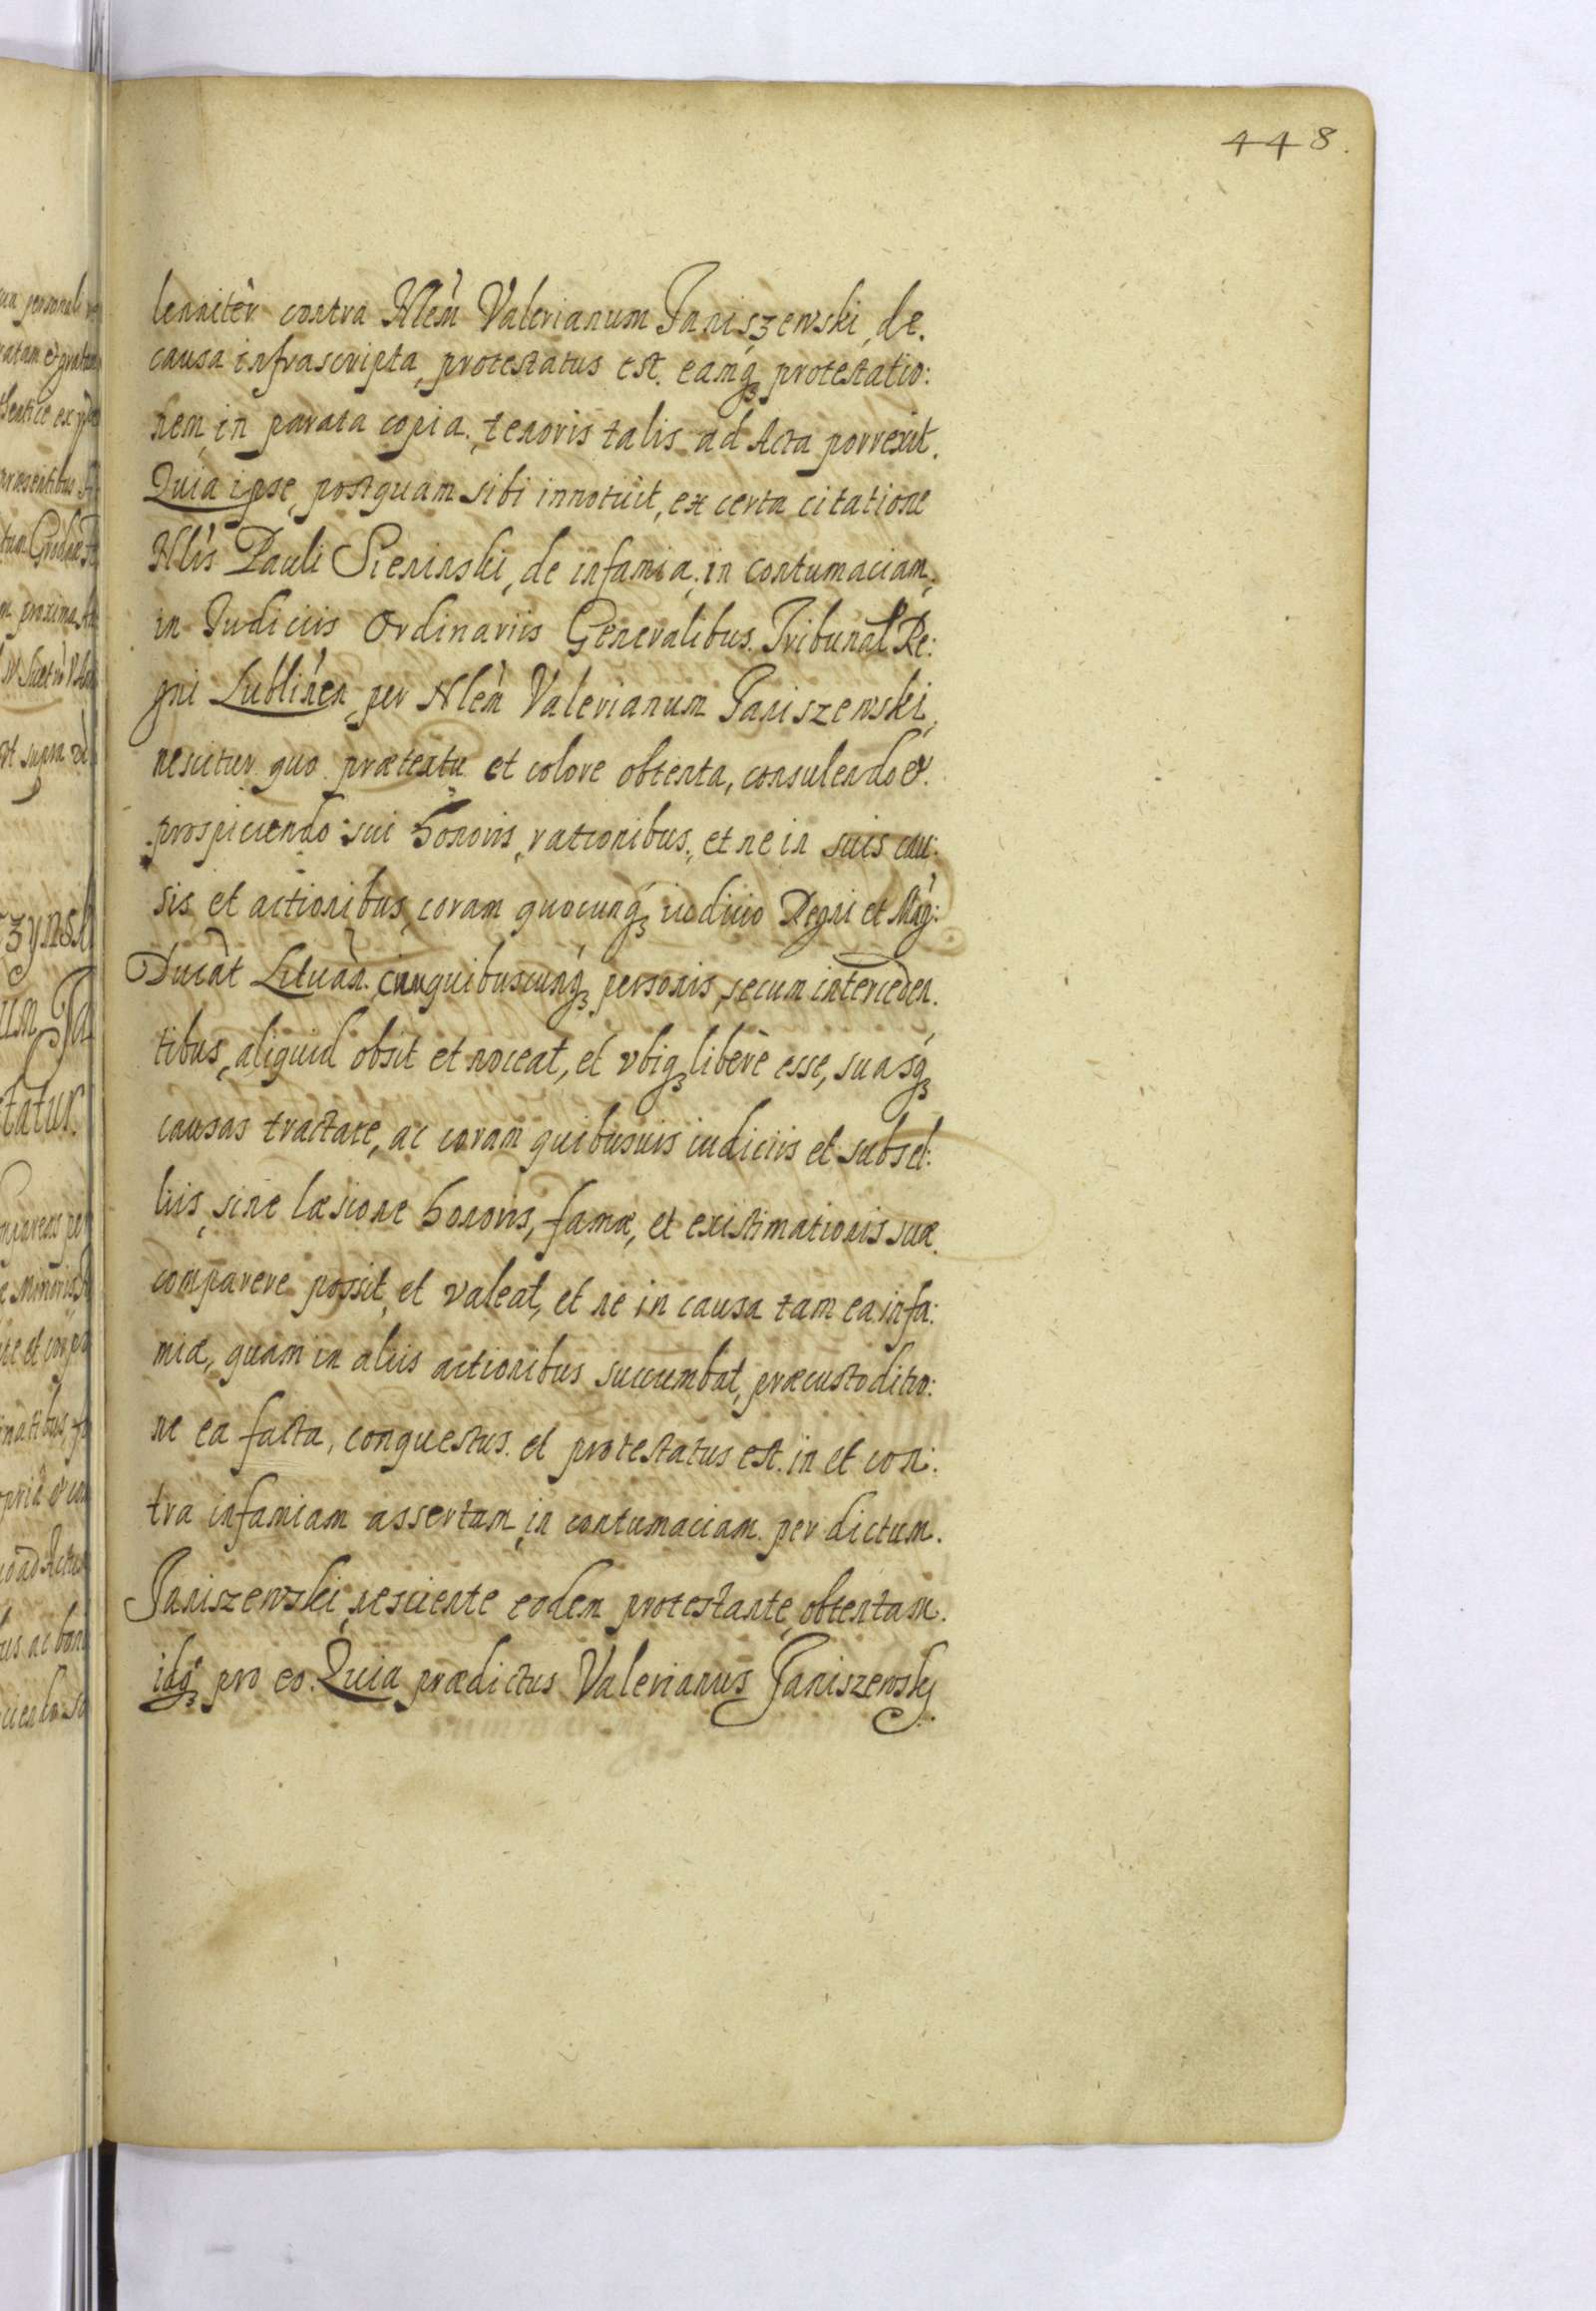 448.
lenniter contra Nlem Valerianum Janiszewski, de.
causa infrascripta, protestatus est. eamq₃ protestatio:
nem, in parata copia. tenoris talis ad Acta porrexit.
Quia ipse, postquam sibi innotuit, ex certa citatione
Nlis Pauli Sieninski, de infamia. in contumaciam,
in Judiciis Ordinariis Generalibus. Tribunal Re:
gni Lublinen, per Nlem Valerianum Janiszewski,
nescitur quo prætextu et colore obtenta, consulendo &
prospiciendo sui honoris, rationibus, et ne in suis cau:
sis et actionibus, coram quocunq₃ iudicio Regni et Mag:
Ducat Lituan. cum quibuscunq₃ personis, secum interceden.
tibus, aliquid obsit et noceat, et vbiq₃ libere esse, suasq₃
causas tractare, ac coram quibusuis iudiciis et subsel:
liis, sine læsione honoris, famæ, et existimationis suæ.
comparere possit, et valeat, et ne in causa tam ea infa:
miæ, quam in aliis actionibus succumbat, præcustoditio:
ne ea facta, conquestus. et protestatus est. in et con:
tra infamiam assertam, in contumaciam per dictum.
Janiszewski, nesciente eodem protestante, obtentam.
idq₃ pro eo. Quia prædictus Valerianus Janiszewsky